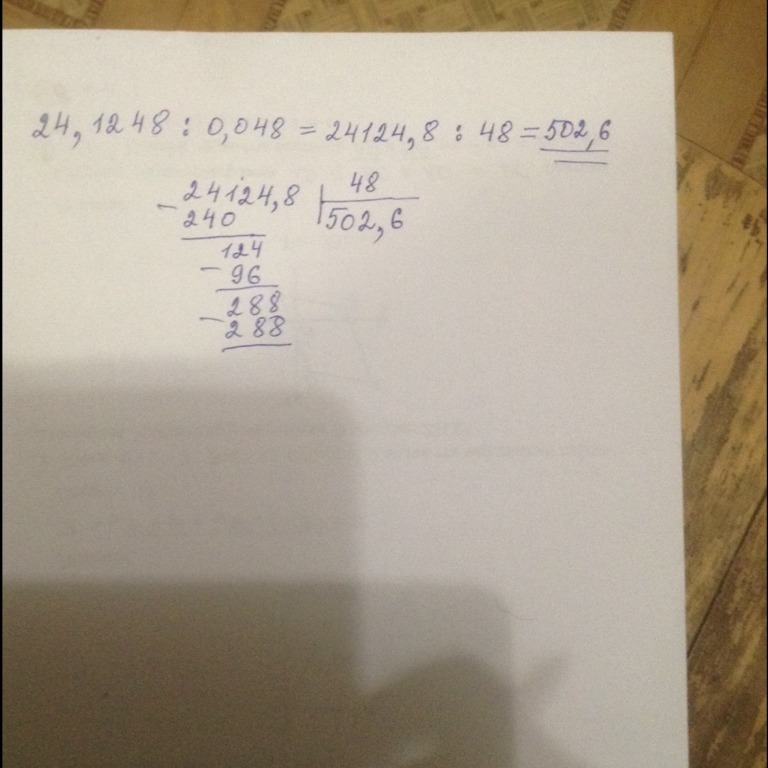 24,1248 : 0,048 = 24124,8 : 48 = 502,6
- 24124,8 | 48
240 502,6
124
- 96
288
- 288